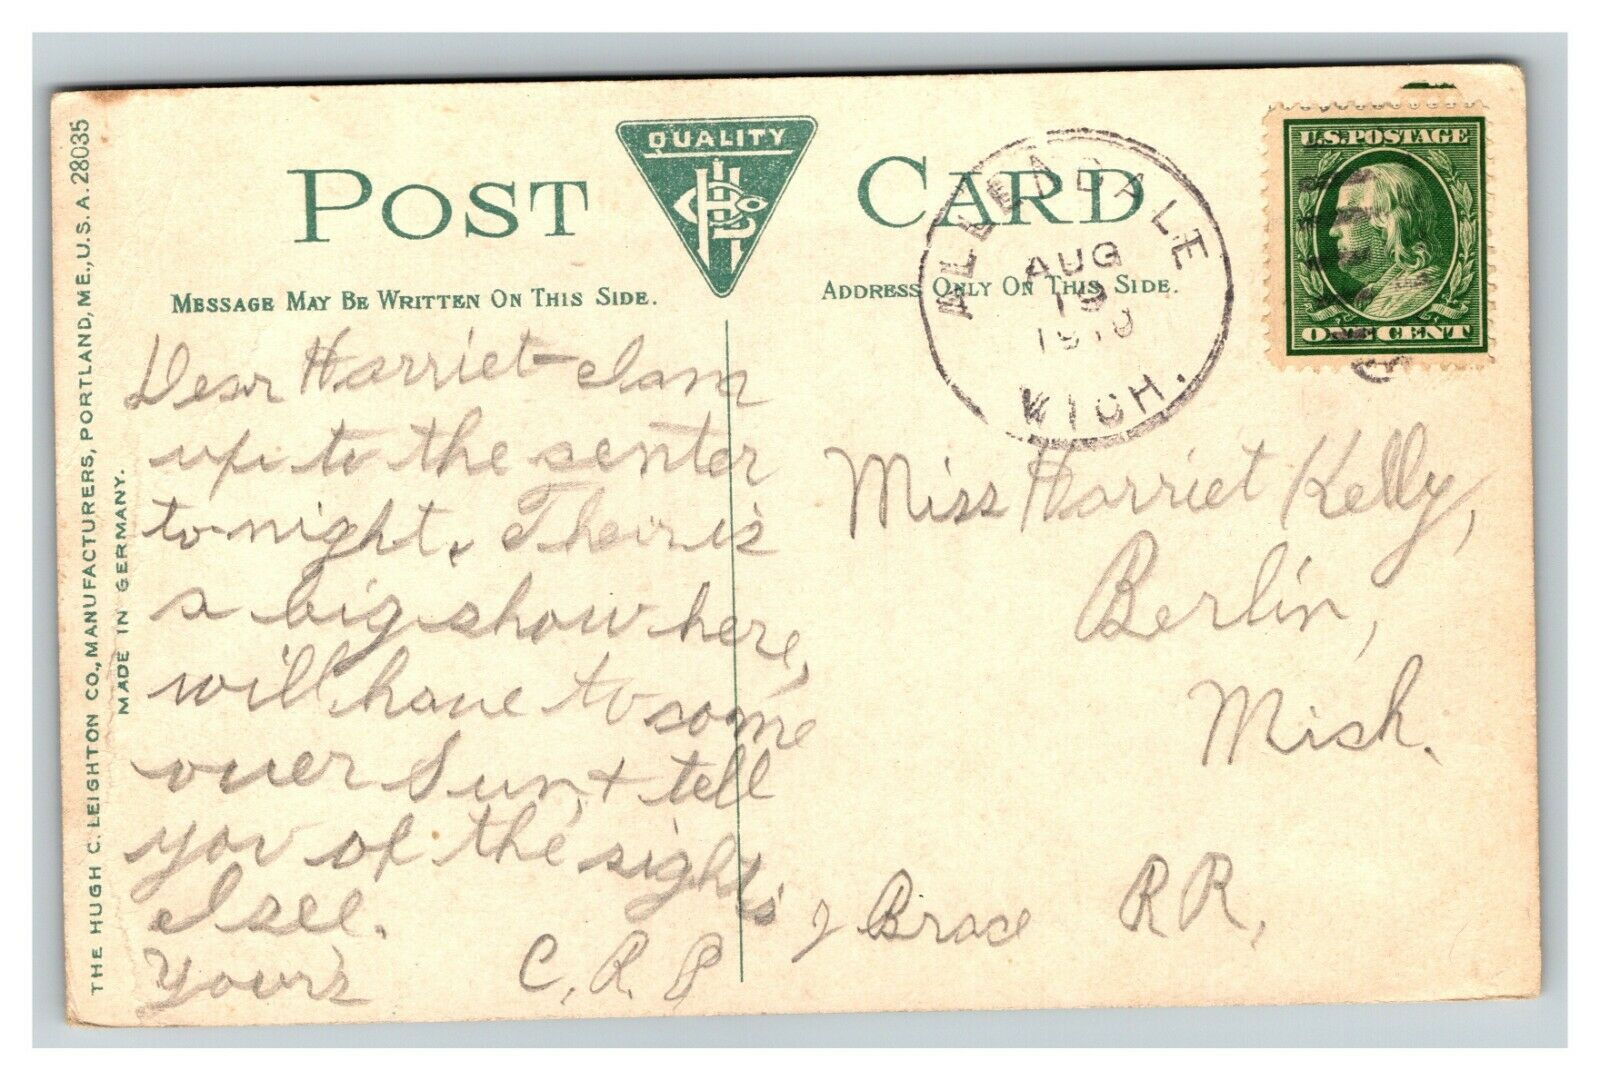 THE HUGH C. LEIGHTON CO., MANUFACTURERS, PORTLAND, ME., U.S.A. 28035
MADE IN GERMANY.
POST CARD
QUALITY
MESSAGE MAY BE WRITTEN ON THIS SIDE.
Dear Harriet - I am
up to the senter
to-night. Their is
a big show here,
will have to come
over Sun, + tell
you of the sights
I see.
Yours C. R. B
ADDRESS ONLY ON THIS SIDE.
ALLENDALE
AUG
19
1910
MICH.
U.S. POSTAGE
ONE CENT
Miss Harriet Kelly,
Berlin,
Mich.
RR,